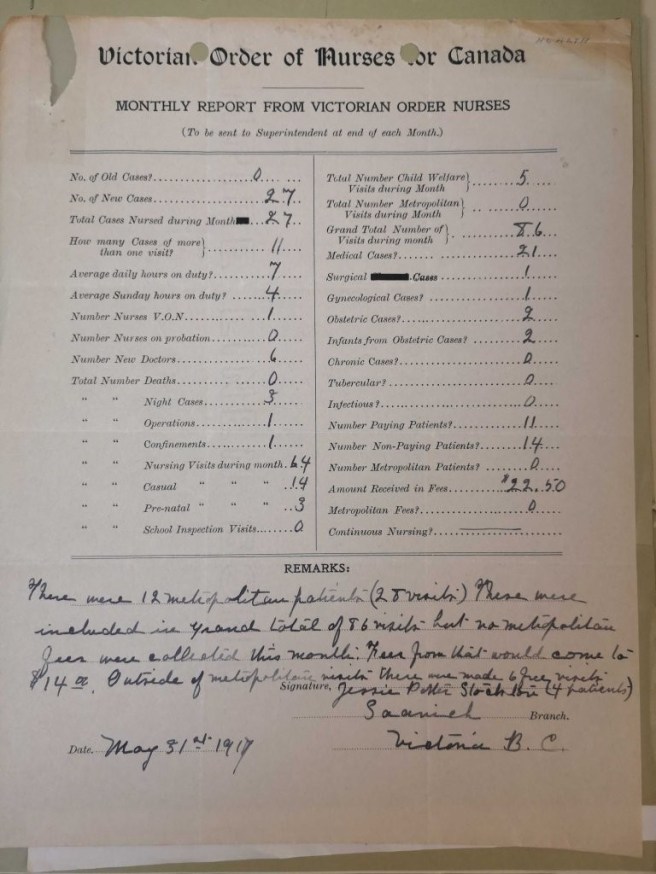 Victorian Order of Nurses for Canada
MONTHLY REPORT FROM VICTORIAN ORDER NURSES
(To be sent to Superintendent at end of each Month.)
No. of Old Cases? 0
No. of New Cases 27
Total Cases Nursed during Month 27
How many Cases of more than one visit? 11
Average daily hours on duty? 7
Average Sunday hours on duty? 4
Number Nurses V.O.N 1
Number Nurses on probation 0
Number New Doctors 6
Total Number Deaths 0
" " Night Cases 3
" " Operations 1
" " Confinements 1
" " Nursing Visits during month 64
" " Casual " " " 14
" " Pre-natal " " " 3
" " School Inspection Visits 0
Total Number Child Welfare Visits during Month 5
Total Number Metropolitan Visits during Month 0
Grand Total Number of Visits during month 86
Medical Cases? 21
Surgical Cases 1
Gynecological Cases? 1
Obstetric Cases? 2
Infants from Obstetric Cases? 2
Chronic Cases? 0
Tubercular? 0
Infectious? 0
Number Paying Patients? 11
Number Non-Paying Patients? 14
Number Metropolitan Patients? 0
Amount Received in Fees $22.50
Metropolitan Fees? 0
Continuous Nursing?
REMARKS:
There were 12 metropolitan patients (28 visits) These were
included in grand total of 86 visits but no metropolitan
fees were collected this month. Fees from that would come to
$14.00. Outside of metropolitan visits there were made 6 free visits
(4 patients)
Signature, Jessie Potter Stockton
Saanich Branch.
Date. May 31st 1917 Victoria B. C.